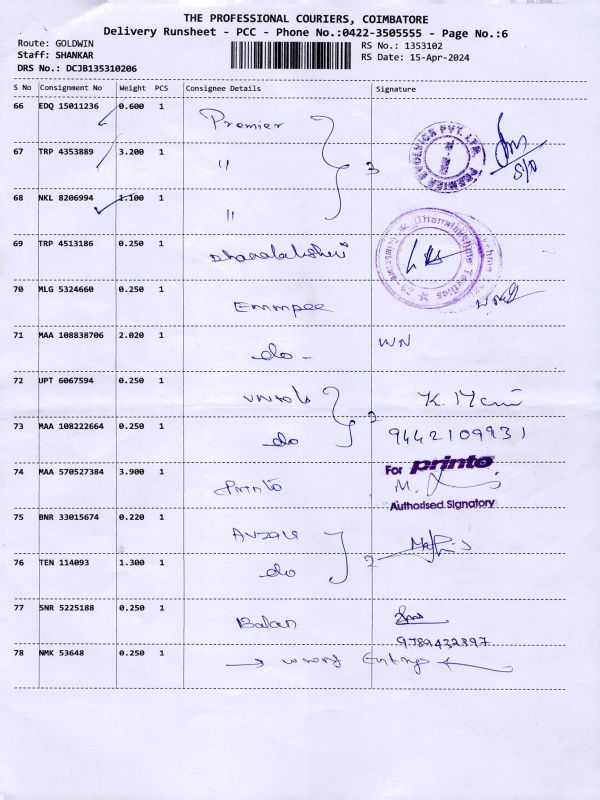 THE PROFESSIONAL COURIERS, COIMBATORE
Delivery Runsheet - PCC - Phone No.:0422-3505555 - Page No.:6
Route: GOLDWIN
RS No.: 1353102
Staff: SHANKAR
RS Date: 15-Apr-2024
DRS No.: DCJB135310206
S No Consignment No Weight PCS Consignee Details Signature
66 EDQ 15011236 0.600 1 Premier
67 TRP 4353889 3.200 1 " 3
68 NKL 8206994 1.100 1 "
69 TRP 4513186 0.250 1 Dhanalakshmi
70 MLG 5324660 0.250 1 Emmpee
71 MAA 108838706 2.020 1 do - WN
72 UPT 6067594 0.250 1 2
73 MAA 108222664 0.250 1 do 9442109931
For printo
74 MAA 570527384 3.900 1 Printo
Authorised Signatory
75 BNR 33015674 0.220 1
76 TEN 114093 1.300 1 do 2
77 SNR 5225188 0.250 1 Balan
9789432897
78 NMK 53648 0.250 1 → wrong Entry ←